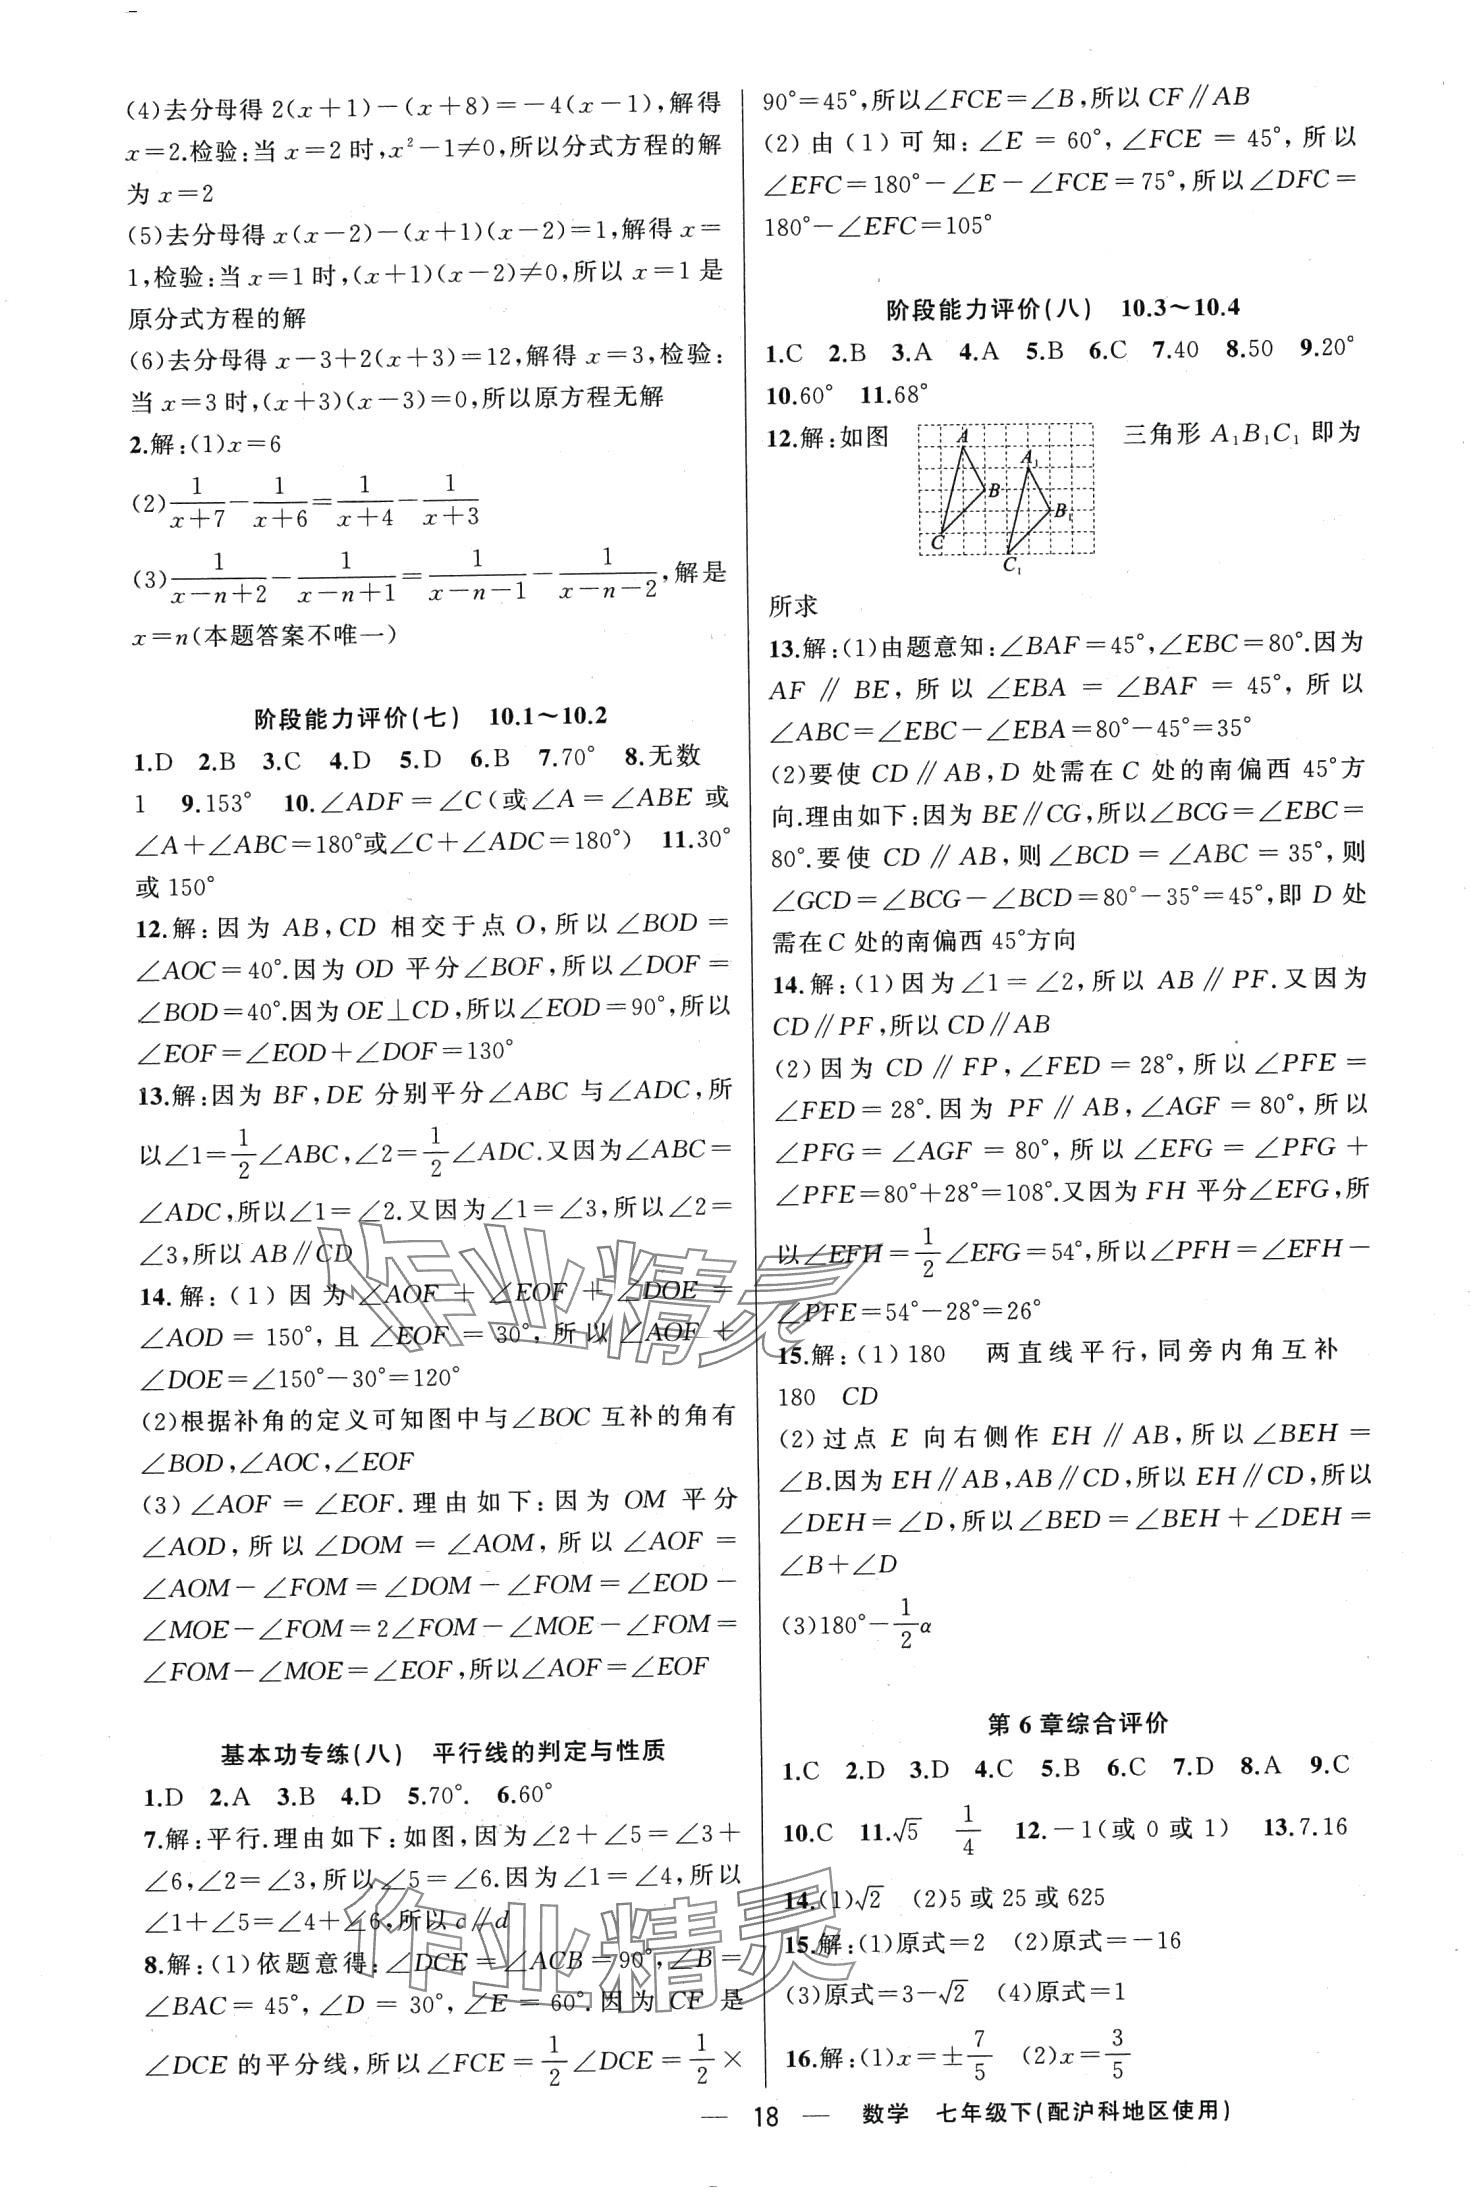 (4)去分母得 2(x+1)-(x+8)=-4(x-1),解得
x=2.检验:当 x=2 时,x²-1≠0,所以分式方程的解
为 x=2
(5)去分母得 x(x-2)-(x+1)(x-2)=1,解得 x=
1,检验:当 x=1 时,(x+1)(x-2)≠0,所以 x=1 是
原分式方程的解
(6)去分母得 x-3+2(x+3)=12,解得 x=3,检验:
当 x=3 时,(x+3)(x-3)=0,所以原方程无解
2.解:(1)x=6
(2)1/(x+7)-1/(x+6)=1/(x+4)-1/(x+3)
(3)1/(x-n+2)-1/(x-n+1)=1/(x-n-1)-1/(x-n-2),解是
x=n(本题答案不唯一)
阶段能力评价(七) 10.1~10.2
1.D 2.B 3.C 4.D 5.D 6.B 7.70° 8.无数
1 9.153° 10.∠ADF=∠C(或∠A=∠ABE 或
∠A+∠ABC=180°或∠C+∠ADC=180°) 11.30°
或 150°
12.解:因为 AB,CD 相交于点 O,所以∠BOD=
∠AOC=40°.因为 OD 平分∠BOF,所以∠DOF=
∠BOD=40°.因为 OE⊥CD,所以∠EOD=90°,所以
∠EOF=∠EOD+∠DOF=130°
13.解:因为 BF,DE 分别平分∠ABC 与∠ADC,所
以∠1=1/2∠ABC,∠2=1/2∠ADC.又因为∠ABC=
∠ADC,所以∠1=∠2.又因为∠1=∠3,所以∠2=
∠3,所以 AB∥CD
14.解:(1)因为∠AOF+∠EOF+∠DOE=
∠AOD=150°,且∠EOF=30°,所以∠AOF+
∠DOE=∠150°-30°=120°
(2)根据补角的定义可知图中与∠BOC 互补的角有
∠BOD,∠AOC,∠EOF
(3)∠AOF=∠EOF.理由如下:因为 OM 平分
∠AOD,所以∠DOM=∠AOM,所以∠AOF=
∠AOM-∠FOM=∠DOM-∠FOM=∠EOD-
∠MOE-∠FOM=2∠FOM-∠MOE-∠FOM=
∠FOM-∠MOE=∠EOF,所以∠AOF=∠EOF
基本功专练(八) 平行线的判定与性质
1.D 2.A 3.B 4.D 5.70°. 6.60°
7.解:平行.理由如下:如图,因为∠2+∠5=∠3+
∠6,∠2=∠3,所以∠5=∠6.因为∠1=∠4,所以
∠1+∠5=∠4+∠6,所以 c∥d
8.解:(1)依题意得:∠DCE=∠ACB=90°,∠B=
∠BAC=45°,∠D=30°,∠E=60°.因为 CF 是
∠DCE 的平分线,所以∠FCE=1/2∠DCE=1/2×
90°=45°,所以∠FCE=∠B,所以 CF∥AB
(2)由(1)可知:∠E=60°,∠FCE=45°,所以
∠EFC=180°-∠E-∠FCE=75°,所以∠DFC=
180°-∠EFC=105°
阶段能力评价(八) 10.3~10.4
1.C 2.B 3.A 4.A 5.B 6.C 7.40 8.50 9.20°
10.60° 11.68°
12.解:如图 三角形 A₁B₁C₁ 即为
A
A₁
B
B₁
C
C₁
所求
13.解:(1)由题意知:∠BAF=45°,∠EBC=80°.因为
AF∥BE,所以∠EBA=∠BAF=45°,所以
∠ABC=∠EBC-∠EBA=80°-45°=35°
(2)要使 CD∥AB,D 处需在 C 处的南偏西 45°方
向.理由如下:因为 BE∥CG,所以∠BCG=∠EBC=
80°.要使 CD∥AB,则∠BCD=∠ABC=35°,则
∠GCD=∠BCG-∠BCD=80°-35°=45°,即 D 处
需在 C 处的南偏西 45°方向
14.解:(1)因为∠1=∠2,所以 AB∥PF.又因为
CD∥PF,所以 CD∥AB
(2)因为 CD∥FP,∠FED=28°,所以∠PFE=
∠FED=28°.因为 PF∥AB,∠AGF=80°,所以
∠PFG=∠AGF=80°,所以∠EFG=∠PFG+
∠PFE=80°+28°=108°.又因为 FH 平分∠EFG,所
以∠EFH=1/2∠EFG=54°,所以∠PFH=∠EFH-
∠PFE=54°-28°=26°
15.解:(1)180 两直线平行,同旁内角互补
180 CD
(2)过点 E 向右侧作 EH∥AB,所以∠BEH=
∠B.因为 EH∥AB,AB∥CD,所以 EH∥CD,所以
∠DEH=∠D,所以∠BED=∠BEH+∠DEH=
∠B+∠D
(3)180°-1/2α
第 6 章综合评价
1.C 2.D 3.D 4.C 5.B 6.C 7.D 8.A 9.C
10.C 11.√5 1/4 12.-1(或 0 或 1) 13.7.16
14.(1)√2 (2)5 或 25 或 625
15.解:(1)原式=2 (2)原式=-16
(3)原式=3-√2 (4)原式=1
16.解:(1)x=±7/5 (2)x=3/5
— 18 — 数学 七年级下(配沪科地区使用)
作业精灵
作业精灵